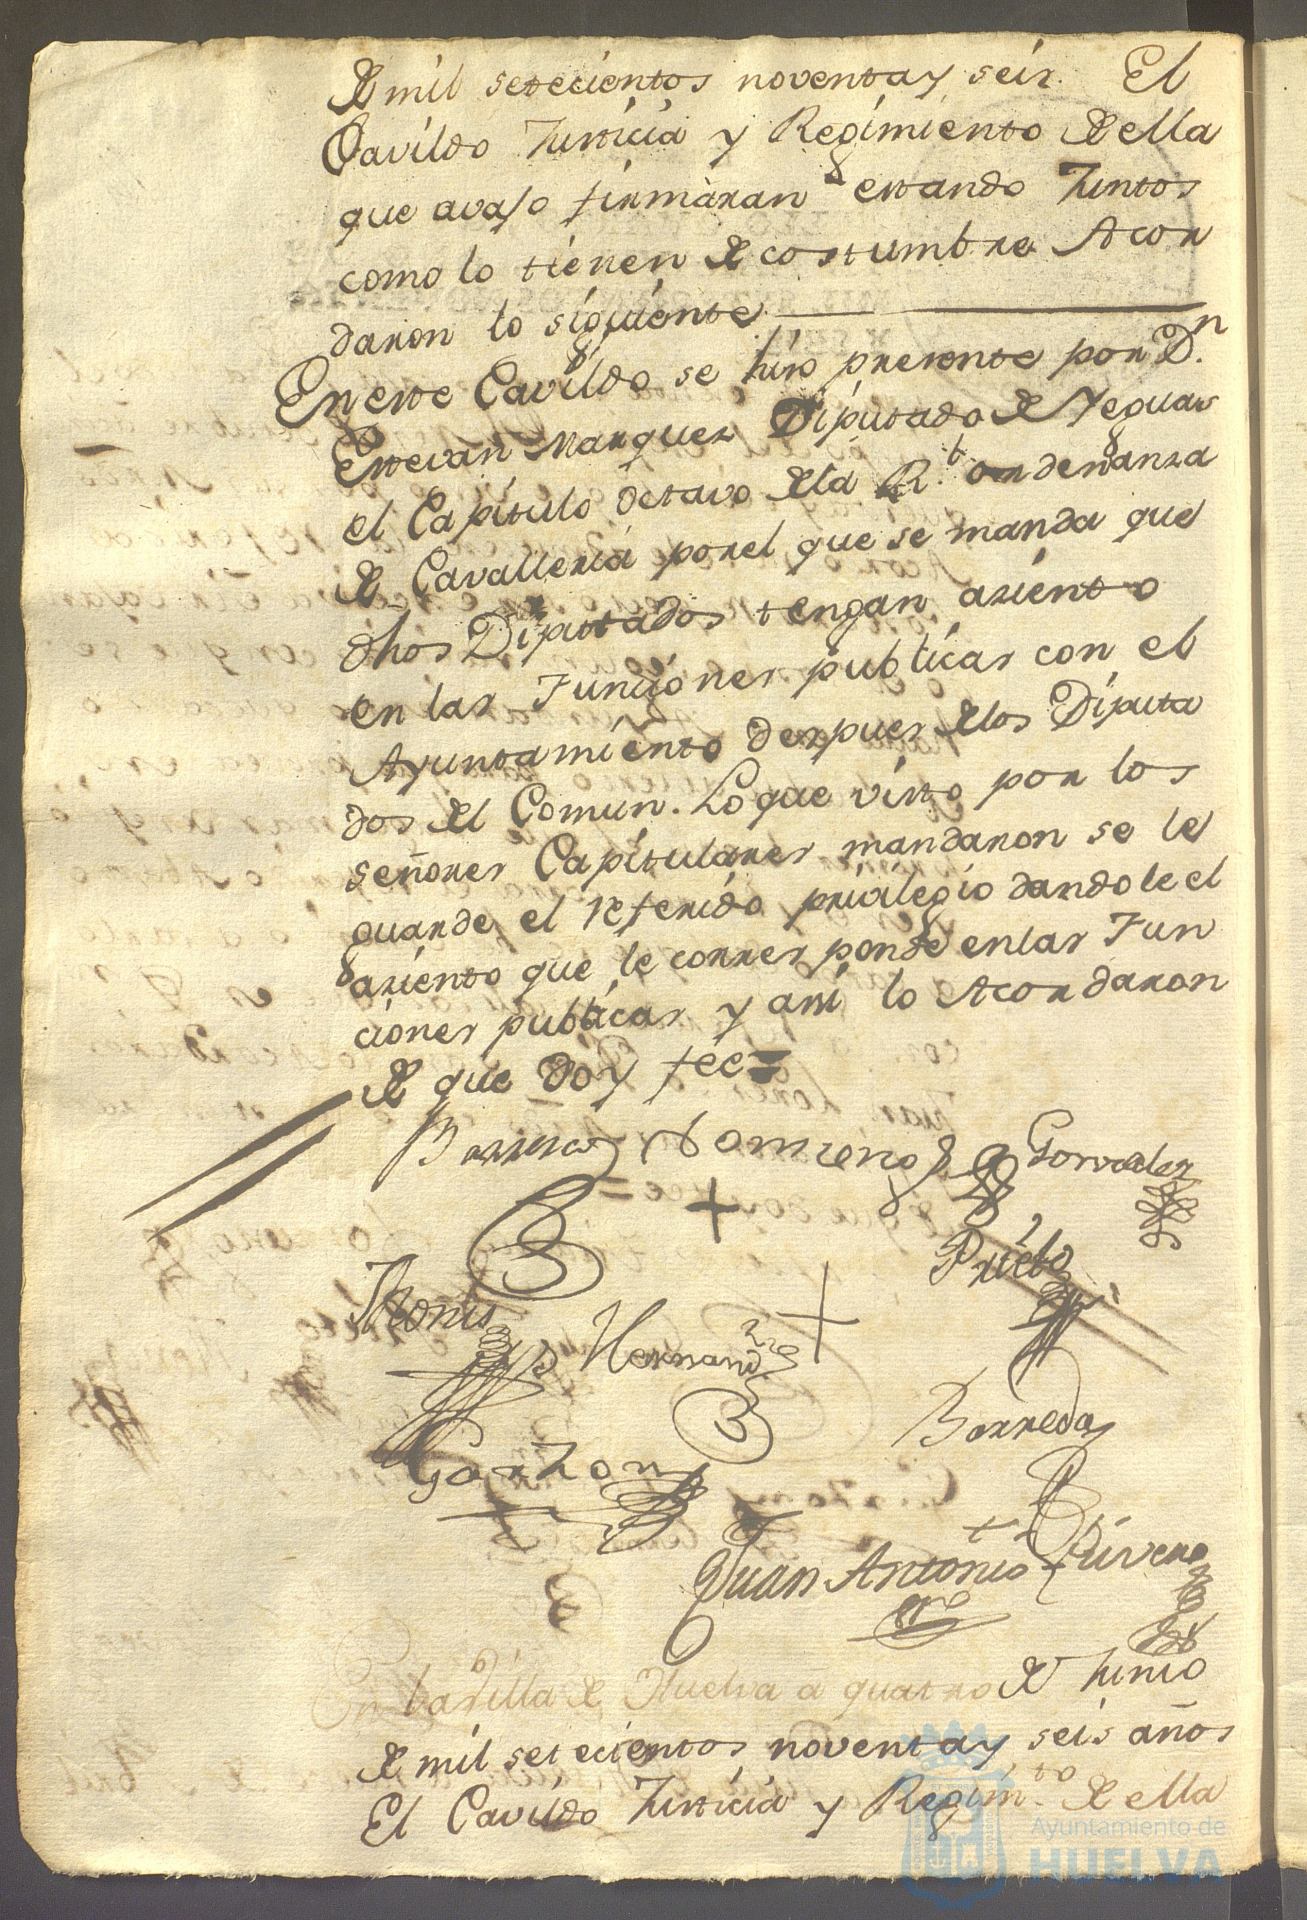 de mil setecientos noventa y seis. El
Cavildo Justicia y Regimiento de ella
que avajo firmaran estando Juntos
como lo tienen de costumbre Acor
daron lo siguiente
En este Cavildo se hizo presente por Dn.
Estevan Marquez Diputado de Yeguas
el Capitulo octavo de la Rl. ordenanza
de Cavalleria por el que se manda que
dhos Diputados tengan asiento
en las Funciones publicas con el
Ayuntamiento despues de los Diputa
dos del Comun. Lo que visto por los
señores Capitulares mandaron se le
guarde el referido privilegio dandole el
asiento que le corresponde en las Fun
ciones publicas y assi lo Acordaron
de que doy fee=
Barrera Romero Gonzalez
Prieto
Hernandz
Borreda
Garzon
Juan Antonio Rivera
En la Villa de Huelva a quatro de Junio
de mil setecientos noventa y seis años
El Cavildo Justicia y Regimto. de ella
Ayuntamiento de
HUELVA